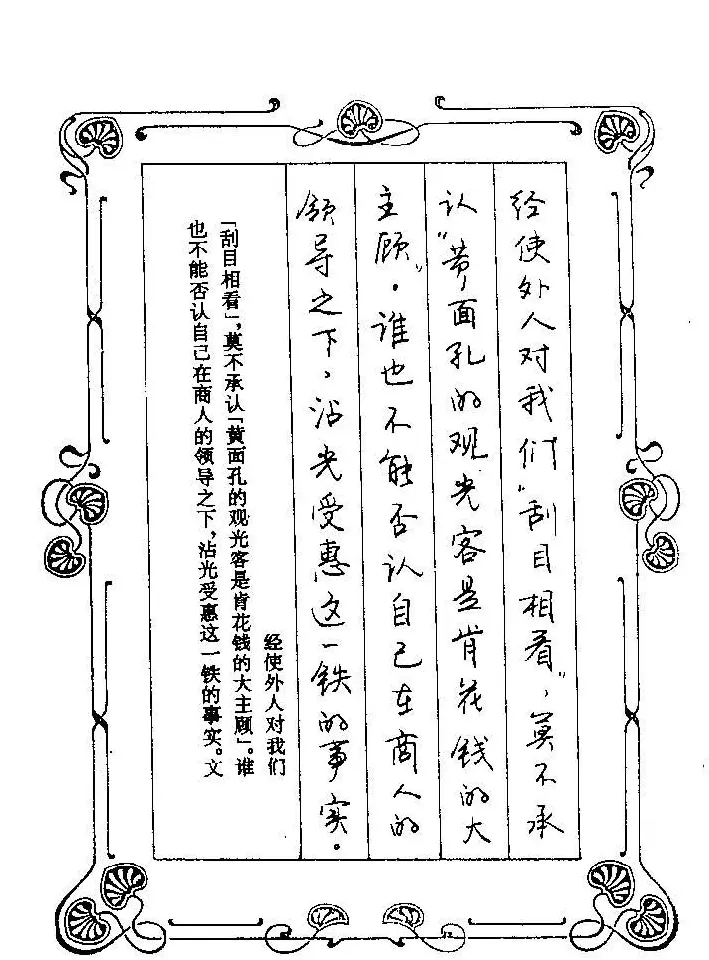 经使外人对我们“刮目相看”,莫不承
认“黄面孔的观光客是肯花钱的大
主顾”。谁也不能否认自己在商人的
领导之下,沾光受惠这一铁的事实。
经使外人对我们
「刮目相看」,莫不承认「黄面孔的观光客是肯花钱的大主顾」。谁
也不能否认自己在商人的领导之下,沾光受惠这一铁的事实。文